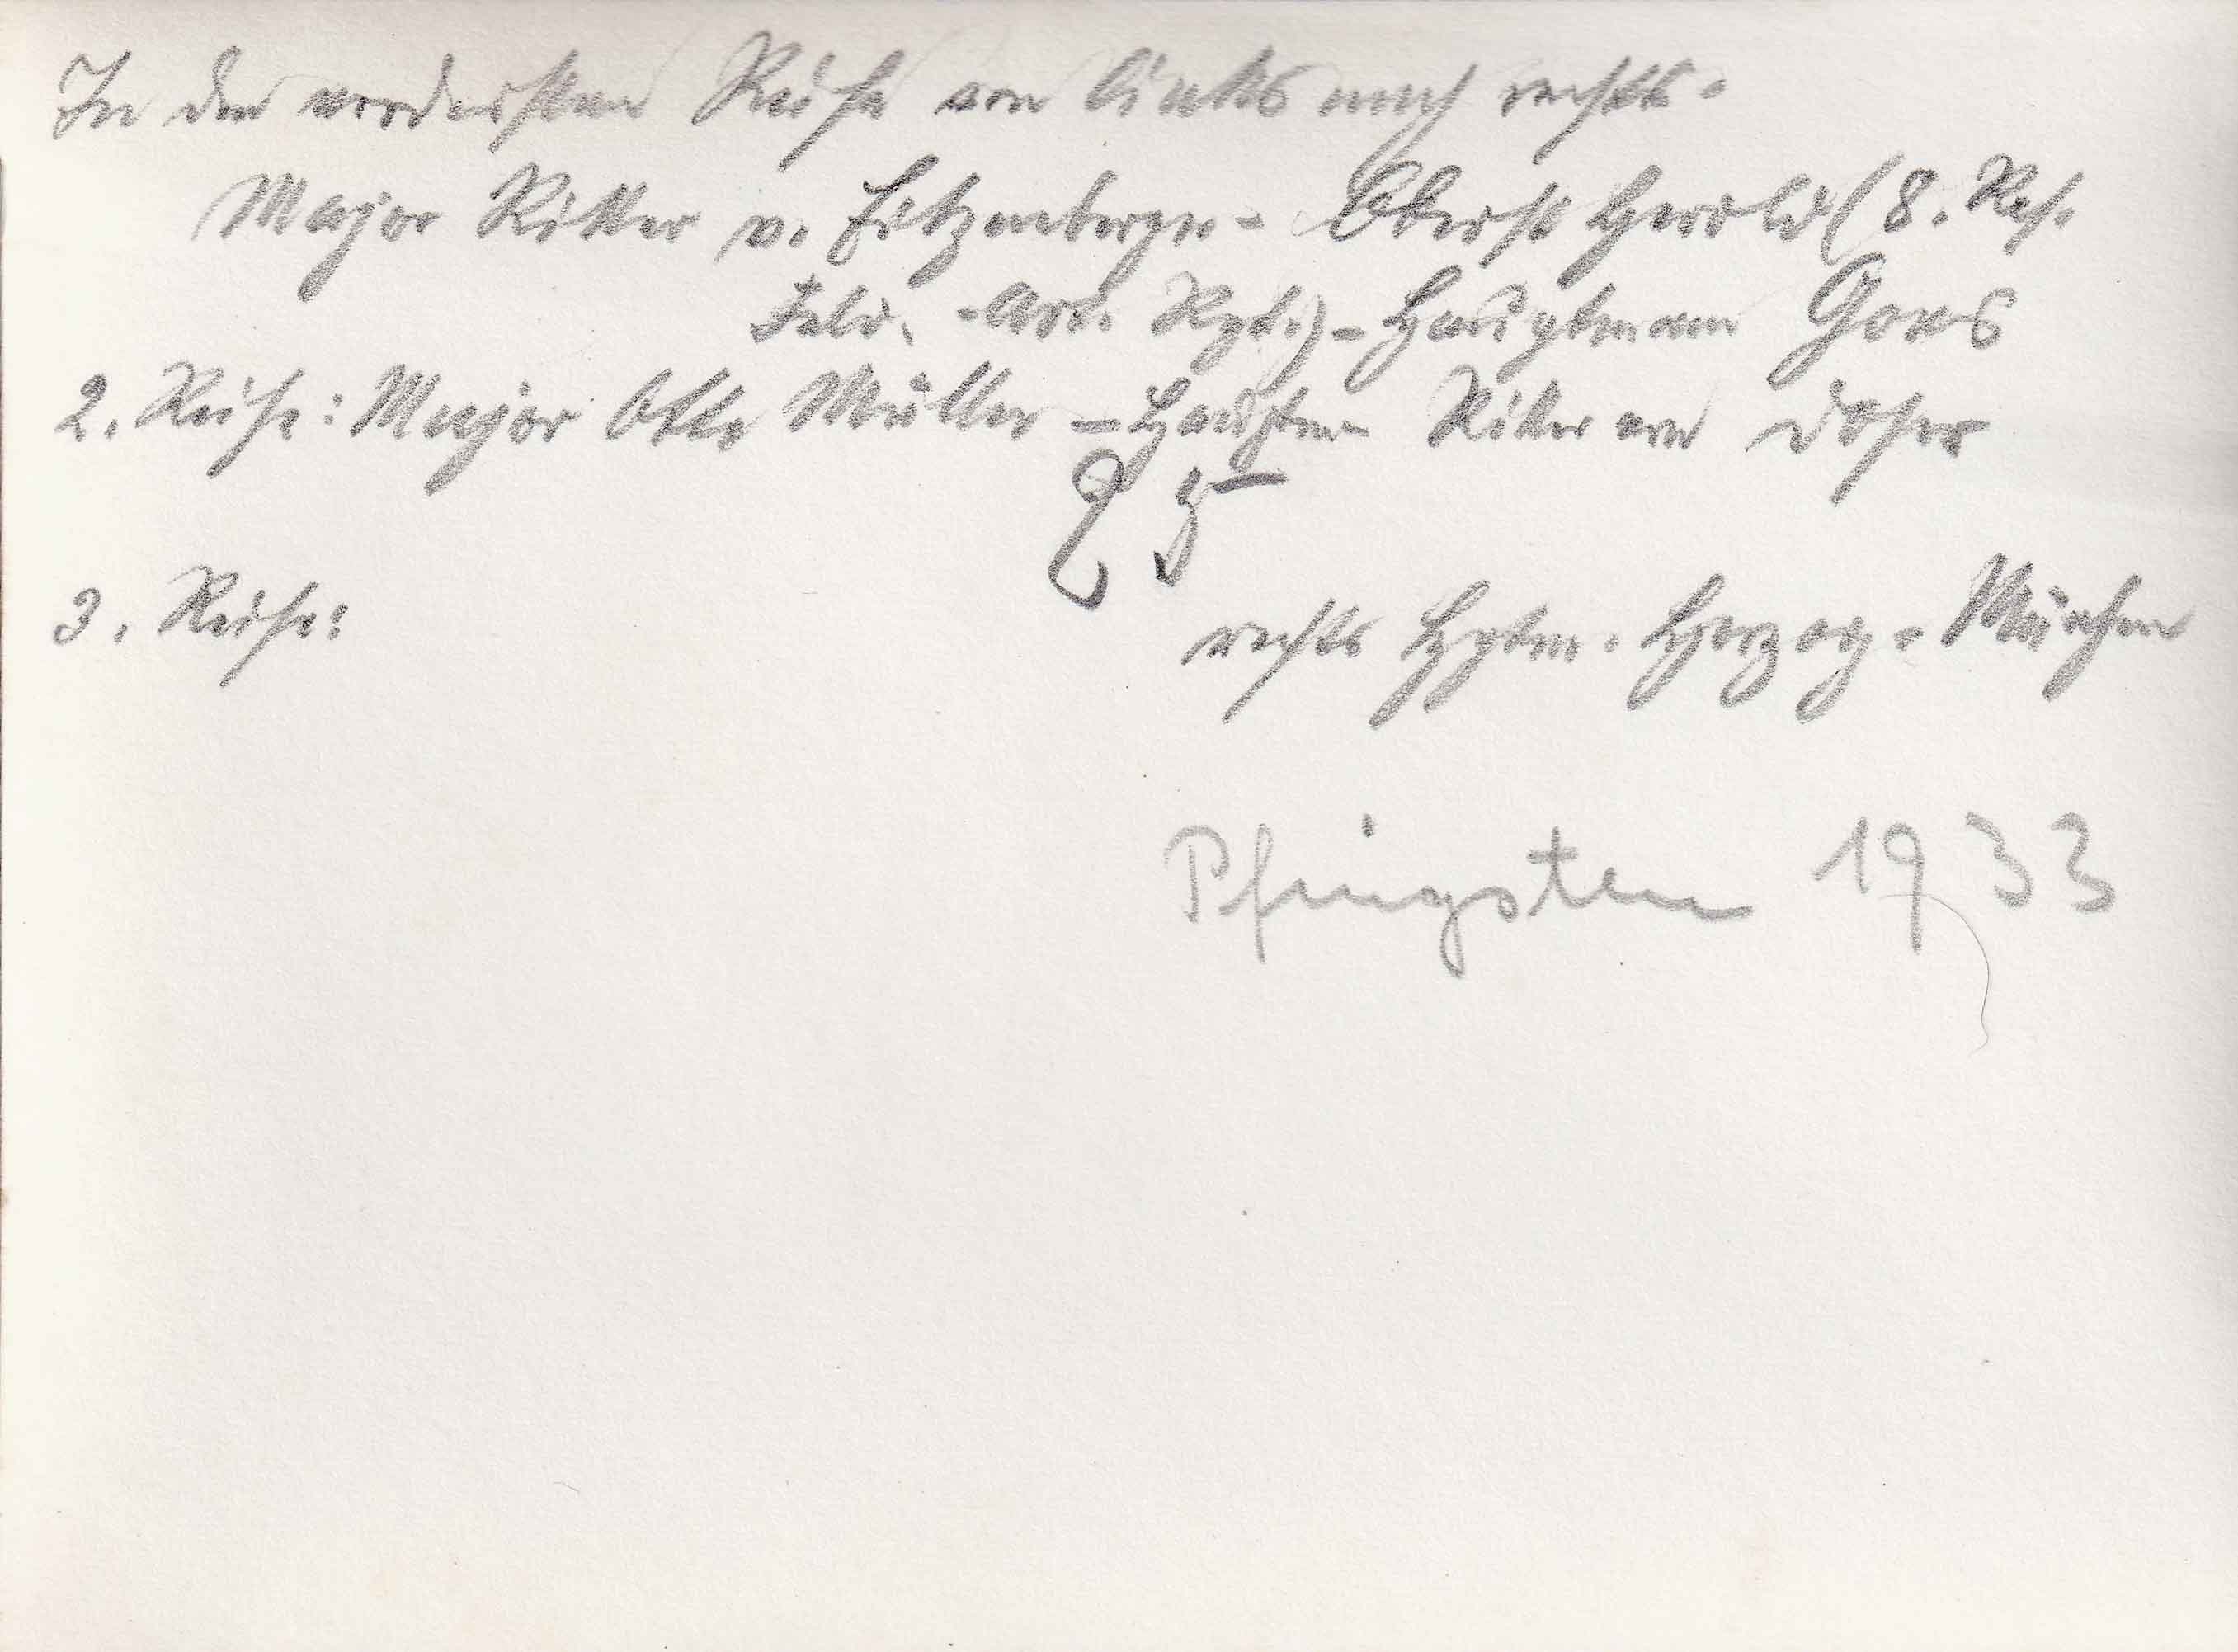 In der vordersten Reihe von links nach rechts.
Major Ritter v. Fitzenberger - Oberst Herold (8. Res.
Feld. - Art. Rgt.) - Hauptmann Gons
2. Reihe: Major Otto Müller - Hauptm Ritter von Döhse
3. Reihe: rechts Hptm. Herzog - München
Pfingsten 1933